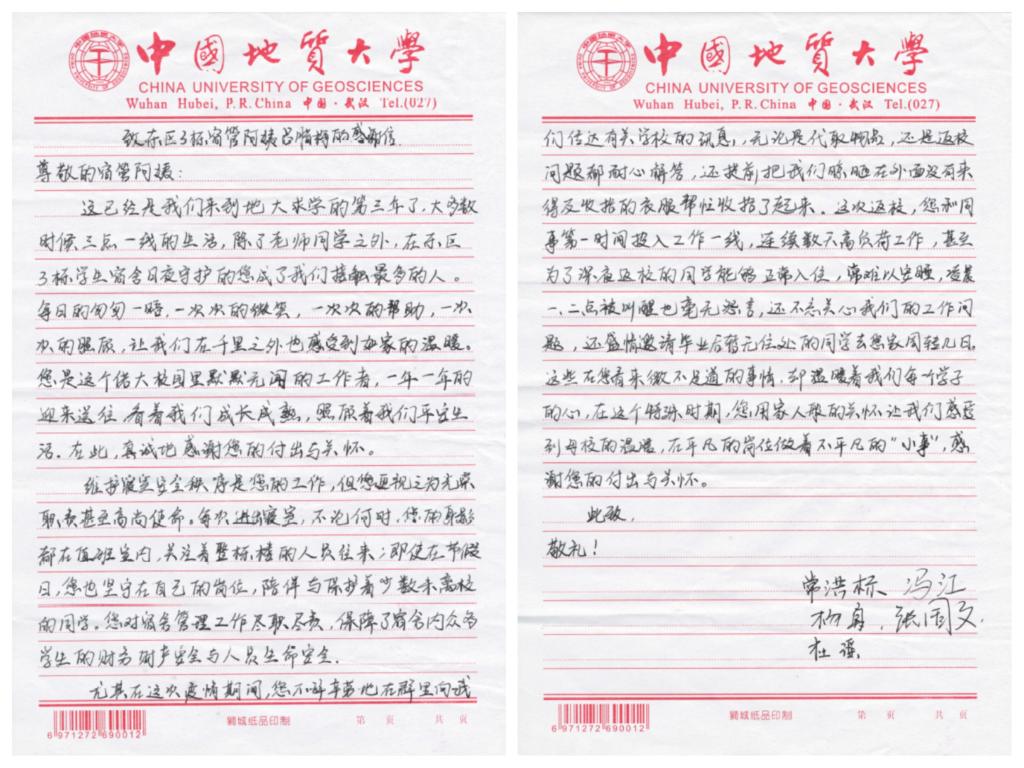 中國地質大學
CHINA UNIVERSITY OF GEOSCIENCES
Wuhan Hubei, P.R.China 中国·武汉 Tel.(027)
致东区3栋宿管阿姨吕惰梅的感谢信
尊敬的宿管阿姨:
这已经是我们来到地大求学的第三年了,大多数
时候三点一线的生活,除了老师同学之外,在东区
3栋学生宿舍日夜守护的您成了我们接触最多的人。
每日的匆匆一晤,一次次的微笑,一次次的帮助,一次
次的照顾,让我们在千里之外也感受到如家的温暖。
您是这个偌大校园里默默无闻的工作者,一年一年的
迎来送往,看着我们成长成熟,照顾着我们平安生
活。在此,真诚地感谢您的付出与关怀。
维护寝室安全秩序是您的工作,但您更视之为光荣
职责甚至高尚使命。每次进出寝室,不论何时,您的身影
都在值班室内,关注着整栋楼的人员往来;即使在节假
日,您也坚守在自己的岗位,陪伴与保护着少数未离校
的同学。您对宿舍管理工作尽职尽责,保障了宿舍内众多
学生的财务财产安全与人员生命安全.
尤其在这次疫情期间,您不辞辛劳地在群里向我
獅城纸品印制 第 页 共 页
6 971272 690012
中國地質大學
CHINA UNIVERSITY OF GEOSCIENCES
Wuhan Hubei, P.R.China 中国·武汉 Tel.(027)
们传达有关学校的讯息,无论是代取物品,还是返校
问题都耐心解答,还提前把我们晾晒在外面没有来
得及收拾的衣服帮忙收拾了起来。这次返校,您和同
事第一时间投入工作一线,连续数天高负荷工作,甚至
为了深夜返校的同学能够正常入住,常难以安睡,凌晨
一、二点被叫醒也毫无怨言,还不忘关心我们的工作问
题,还盛情邀请毕业后暂无住处的同学去您家周转几日。
这些在您看来微不足道的事情,却温暖着我们每个学子
的心,在这个特殊时期,您用家人般的关怀让我们感受
到母校的温暖,在平凡的岗位做着不平凡的“小事”,感
谢您的付出与关怀。
此致,
敬礼!
常洪标 冯江
杨 张周文
杜谣
獅城纸品印制 第 页 共 页
6 971272 690012